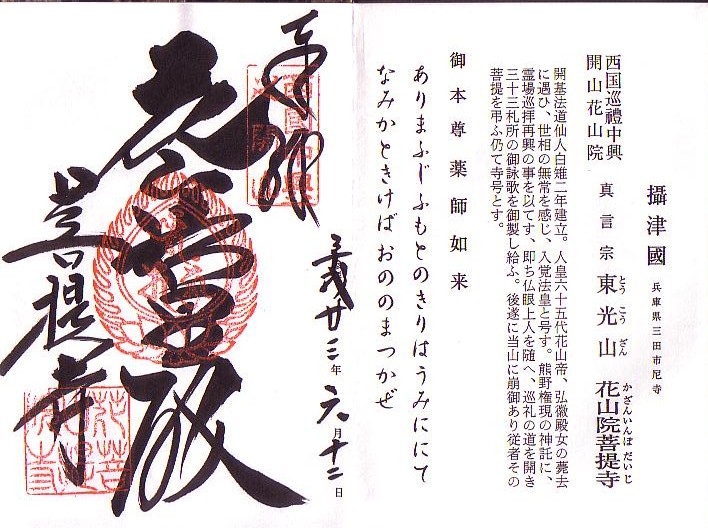 攝津國
兵庫県三田市尼寺
西国巡禮中興
開山花山院
真言宗
東光山
とうこうざん
花山院菩提寺
かざんいんぼだいじ
開基法道仙人白雉二年建立。人皇六十五代花山帝、弘徽殿女の薨去
に遇ひ、世相の無常を感じ、入覚法皇と号す。熊野権現の神託に、
霊場巡拝再興の事を以てす、即ち仏眼上人を随へ、巡礼の道を開き
三十三札所の御詠歌を御製し給ふ。後遂に当山に崩御あり従者その
菩提を弔ふ仍て寺号とす。
御本尊薬師如来
ありまふじふもとのきりはうみににて
なみかときけばおののまつかぜ
廿三年六月十二日
奉拝
菩提寺